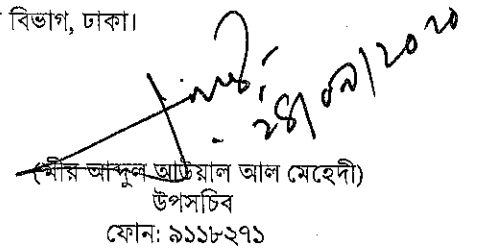 বিভাগ, ঢাকা।
(মীর আব্দুল আউয়াল আল মেহেদী)
উপসচিব
ফোন: ৯১১৮২৭১